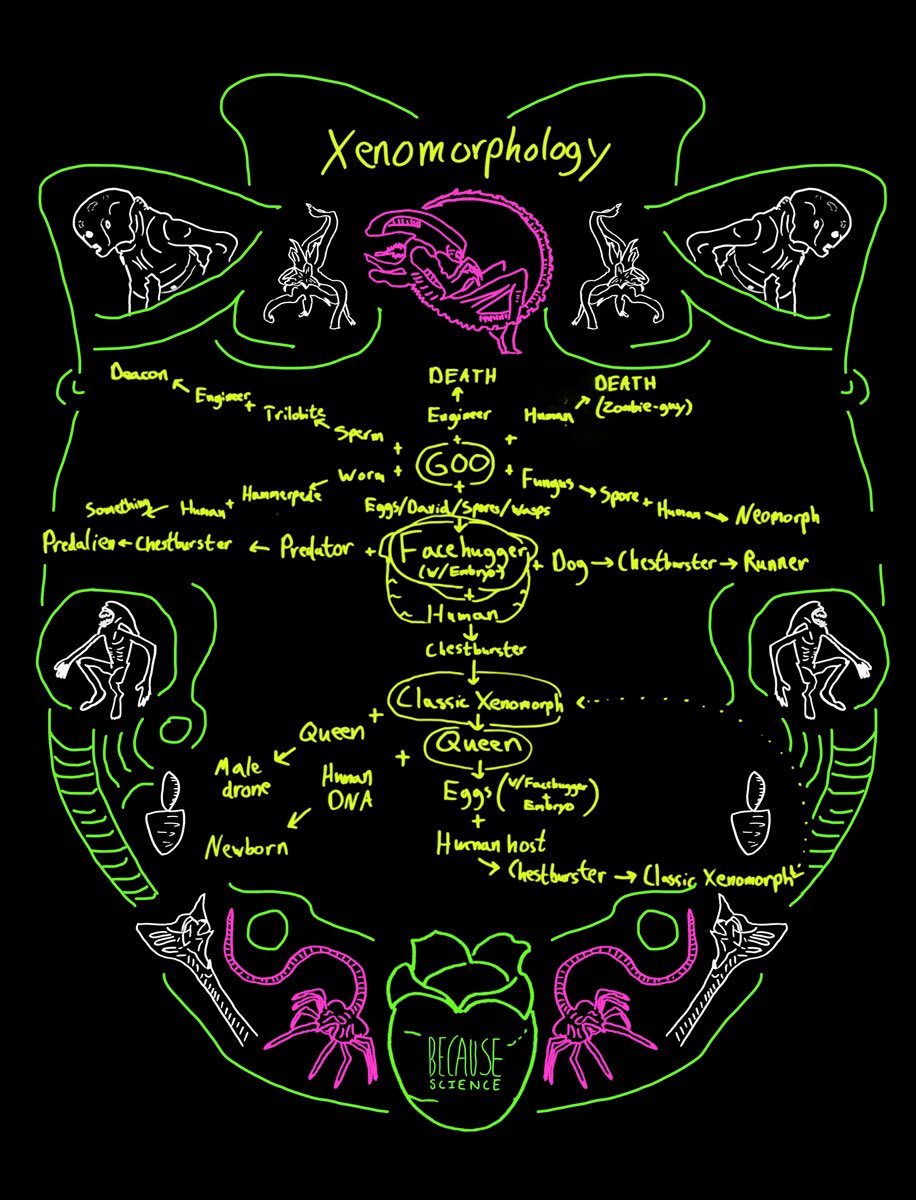 Xenomorphology
DEATH
Engineer
+
GOO
Human
DEATH
(Zombie-guy)
+
Deacon
Engineer
+
Trilobite
Sperm
+
Something
Human
+
Hammerpede
Worm
+
+
Fungus → Spore + Human → Neomorph
+
Eggs/David/Spores/Wasps
Predalien ← Chestburster ← Predator +
Facehugger
(w/Embryo)
+ Dog → Chestburster → Runner
+
Human
Chestburster
Classic Xenomorph
+
Queen
Male
drone
Queen
+
Human
DNA
Newborn
Eggs (w/Facehugger
+
Embryo)
+
Human host
→ Chestburster → Classic Xenomorph
BECAUSE
SCIENCE